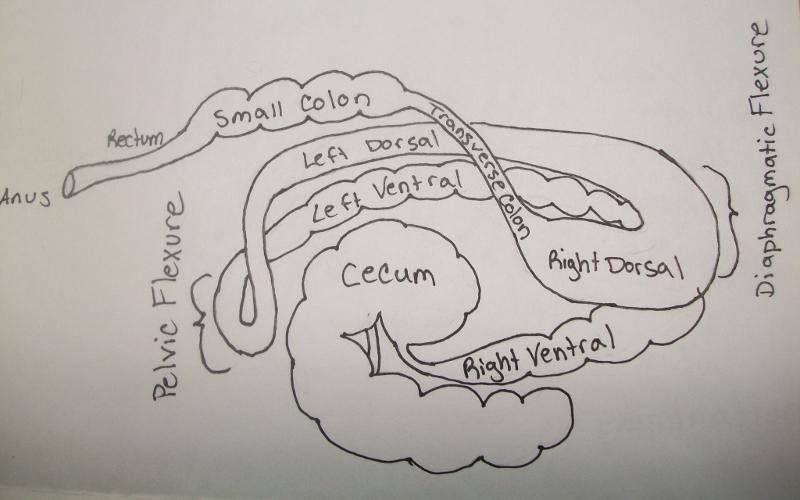 Small Colon
Rectum
Anus
Transverse Colon
Left Dorsal
Left Ventral
Diaphragmatic Flexure
Pelvic Flexure
Cecum
Right Dorsal
Right Ventral